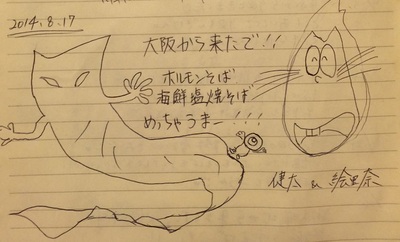 2014.8.17
大阪から来たで!!
ホルモンそば
海鮮塩焼そば
めっちゃうまー!!!
健太 & 絵里奈